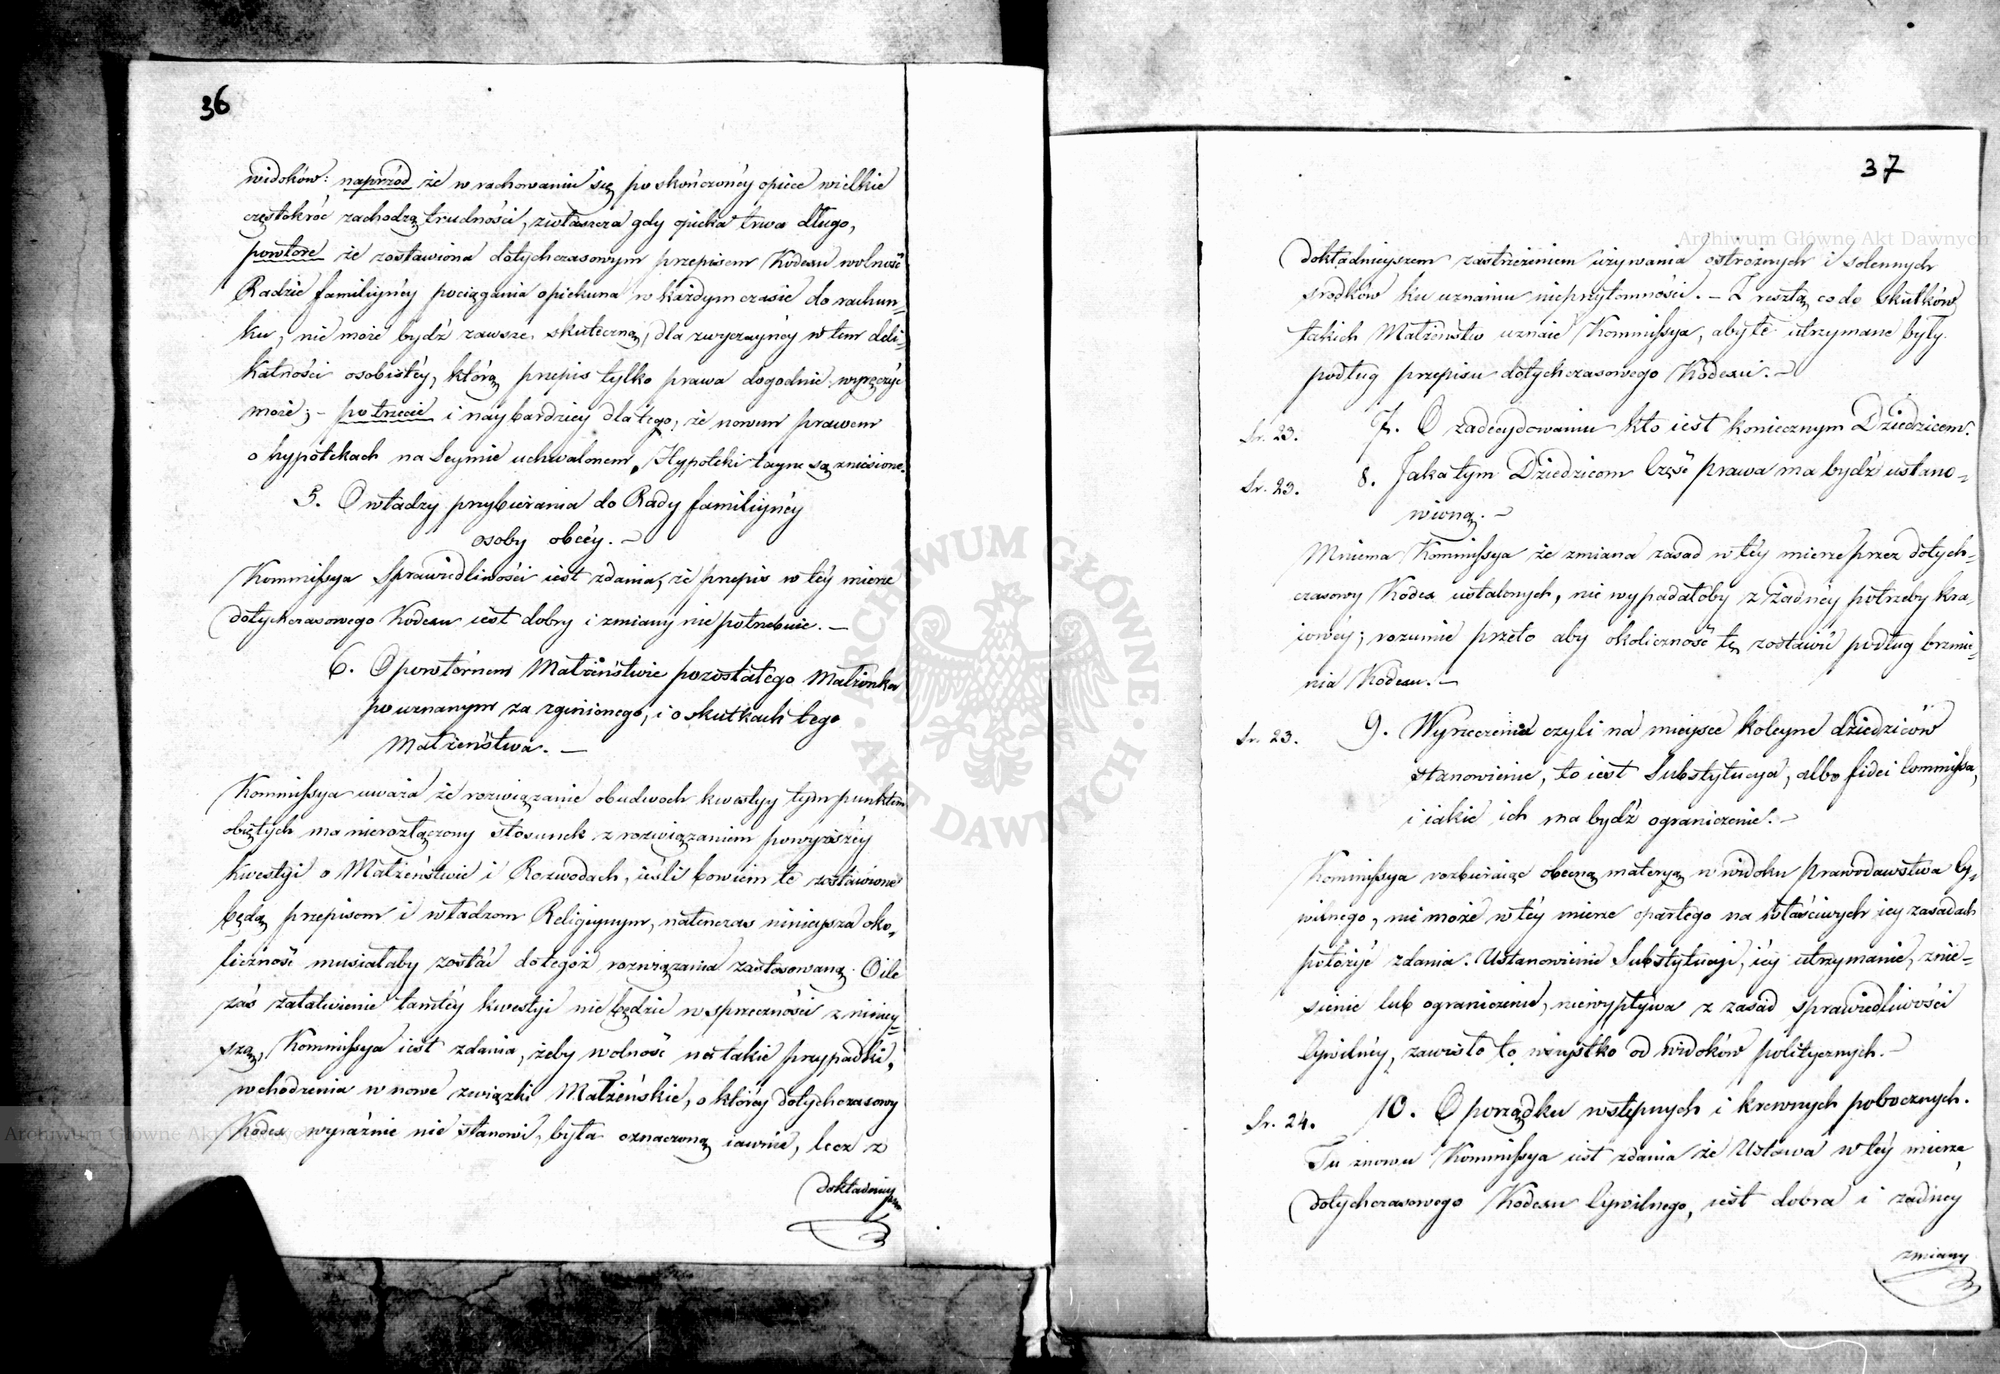 36
widoków: naprzód że w rachowaniu się po skończonéy opiece wielkie
częstokróć zachodzą trudności, zwłaszcza gdy opieka trwa długo,
powtóre że zostawiona dotychczasowym przepisem Kodexu wolność
Radzie familiynéy pociągania opiekuna w każdym czasie do rachun-
ku, nie może bydź zawsze skuteczną, dla zwyczaynéy w tem deli-
katności osobistéy, którą przepis tylko prawa dogodnie wyręczyć
może; - potrzecie i naybardziey dla tego, że nowem prawem
o hypotekach na Seymie uchwalonem, Hypoteki tayne są zniesione.
5. O władzy przybierania do Rady familiynéy
osoby obcéy. -
Kommissya Sprawiedliwości iest zdania, że przepis w téy mierze
dotychczasowego Kodexu iest dobry i zmiany nie potrzebuie. -
6. O powtórnem Małżeństwie pozostałego Małżonka
po uznanym za zginionego, i o skutkach tego
Małżeństwa. -
Kommissya uważa że rozwiązanie obudwóch kwestyy tym punktem
obiętych ma nierozłączony stosunek z rozwiązaniem powyższéy
kwestyi o Małżeństwie i Rozwodach, ieśli bowiem te zostawione
będą przepisom i władzom Religiynym, natenczas ninieysza oko-
liczność musiałaby zostać do tegoż rozwiązania zastosowaną. O ile
zaś załatwienie tamtéy kwestyi nie będzie w sprzeczności z niniey-
szą, Kommissya iest zdania, żeby wolność na takie przypadki,
wchodzenia w nowe związki Małżeńskie, o któréy dotychczasowy
Kodex wyraźnie nie stanowi, była oznaczoną iawnie, lecz z
dokładniey
szem
37
dokładnieyszem zastrzeżeniem używania ostrożnych i solennych
srodków ku uznaniu nieprzytomności. - Z resztą co do skutków
takich Małżeństw uznaie Kommissya, aby te utrzymane były
podług przepisu dotychczasowego Kodexu. -
Sr. 23. 7. O zadecydowaniu kto iest koniecznym Dziedzicem.
Sr. 23. 8. Jaka tym Dziedzicom Część prawa ma bydź ustano-
wioną. -
Mniema Kommissya że zmiana zasad w téy mierze przez dotych-
czasowy Kodex ustalonych, nie wypadałoby z żadnéy potrzeby kra-
iowéy; rozumie przeto aby okoliczność tę zostawić podług brzmie-
nia Kodexu. -
Sr. 23. 9. Wyrzeczenie czyli na mieysce koleyne dziedziców
stanowienie, to iest Substytucya, albo fidei Commissa,
i iakie ich ma bydź ograniczenie. -
Kommissya rozbieraiąc obecną materyą w widoku Prawodawstwa Cy-
wilnego, nie może w téy mierze opartego na właściwych iey zasadach
położyć zdania. Ustanowienie Substytucyi, iéy utrzymanie, znie-
sienie lub ograniczenie, niewypływa z zasad sprawiedliwości
Cywilnéy, zawisło to wszystko od widoków politycznych. -
Sr. 24. 10. O porządku wstępnych i krewnych pobocznych.
Tu znowu Kommissya iest zdania że Ustawa w téy mierze
dotychczasowego Kodexu Cywilnego, iest dobra i żadney
zmiany
Archiwum Główne Akt Dawnych
Archiwum Główne Akt Dawnych
ARCHIWUM GŁÓWNE · AKT DAWNYCH ·